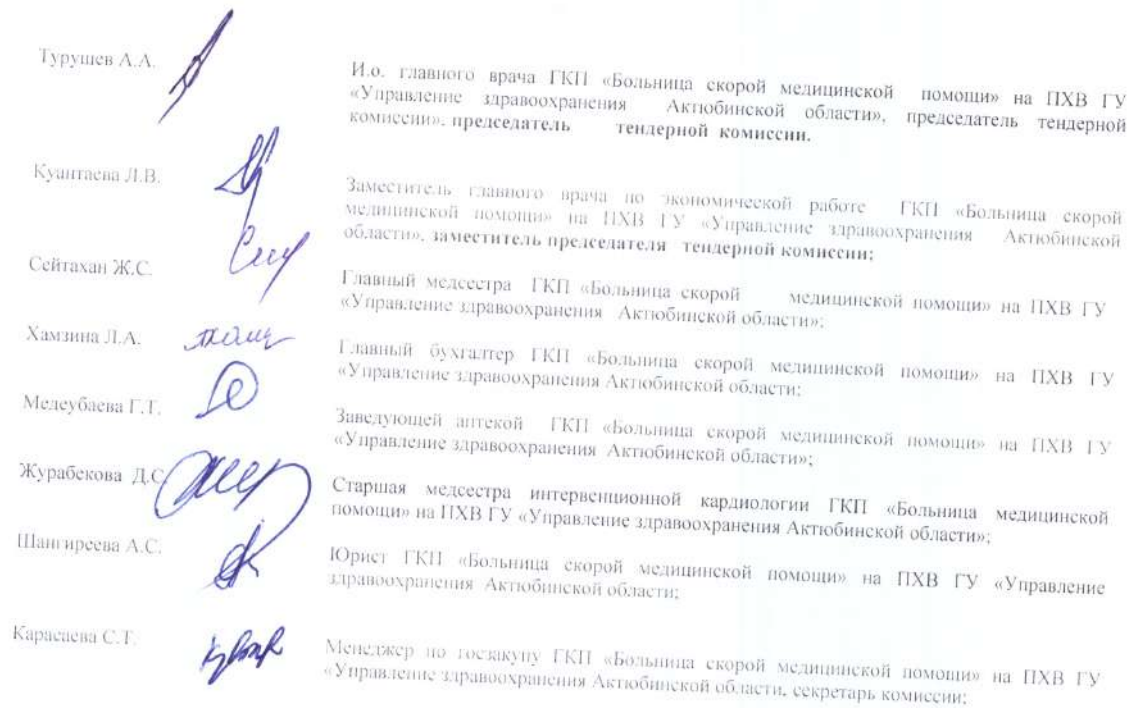 Турушев А.А.
И.о. главного врача ГКП «Больница скорой медицинской помощи» на ПХВ ГУ
«Управление здравоохранения Актюбинской области», председатель тендерной
комиссии», председатель тендерной комиссии.
Куантаева Л.В.
Заместитель главного врача по экономической работе ГКП «Больница скорой
медицинской помощи» на ПХВ ГУ «Управление здравоохранения Актюбинской
области», заместитель председателя тендерной комиссии;
Сейтахан Ж.С.
Главный медсестра ГКП «Больница скорой медицинской помощи» на ПХВ ГУ
«Управление здравоохранения Актюбинской области»;
Хамзина Л.А.
Главный бухгалтер ГКП «Больница скорой медицинской помощи» на ПХВ ГУ
«Управление здравоохранения Актюбинской области;
Медеубаева Г.Т.
Заведующей аптекой ГКП «Больница скорой медицинской помощи» на ПХВ ГУ
«Управление здравоохранения Актюбинской области»;
Журабекова Д.С.
Старшая медсестра интервенционной кардиологии ГКП «Больница медицинской
помощи» на ПХВ ГУ «Управление здравоохранения Актюбинской области»;
Шангиреева А.С.
Юрист ГКП «Больница скорой медицинской помощи» на ПХВ ГУ «Управление
здравоохранения Актюбинской области;
Карасаева С.Т.
Менеджер по госзакупу ГКП «Больница скорой медицинской помощи» на ПХВ ГУ
«Управление здравоохранения Актюбинской области, секретарь комиссии;